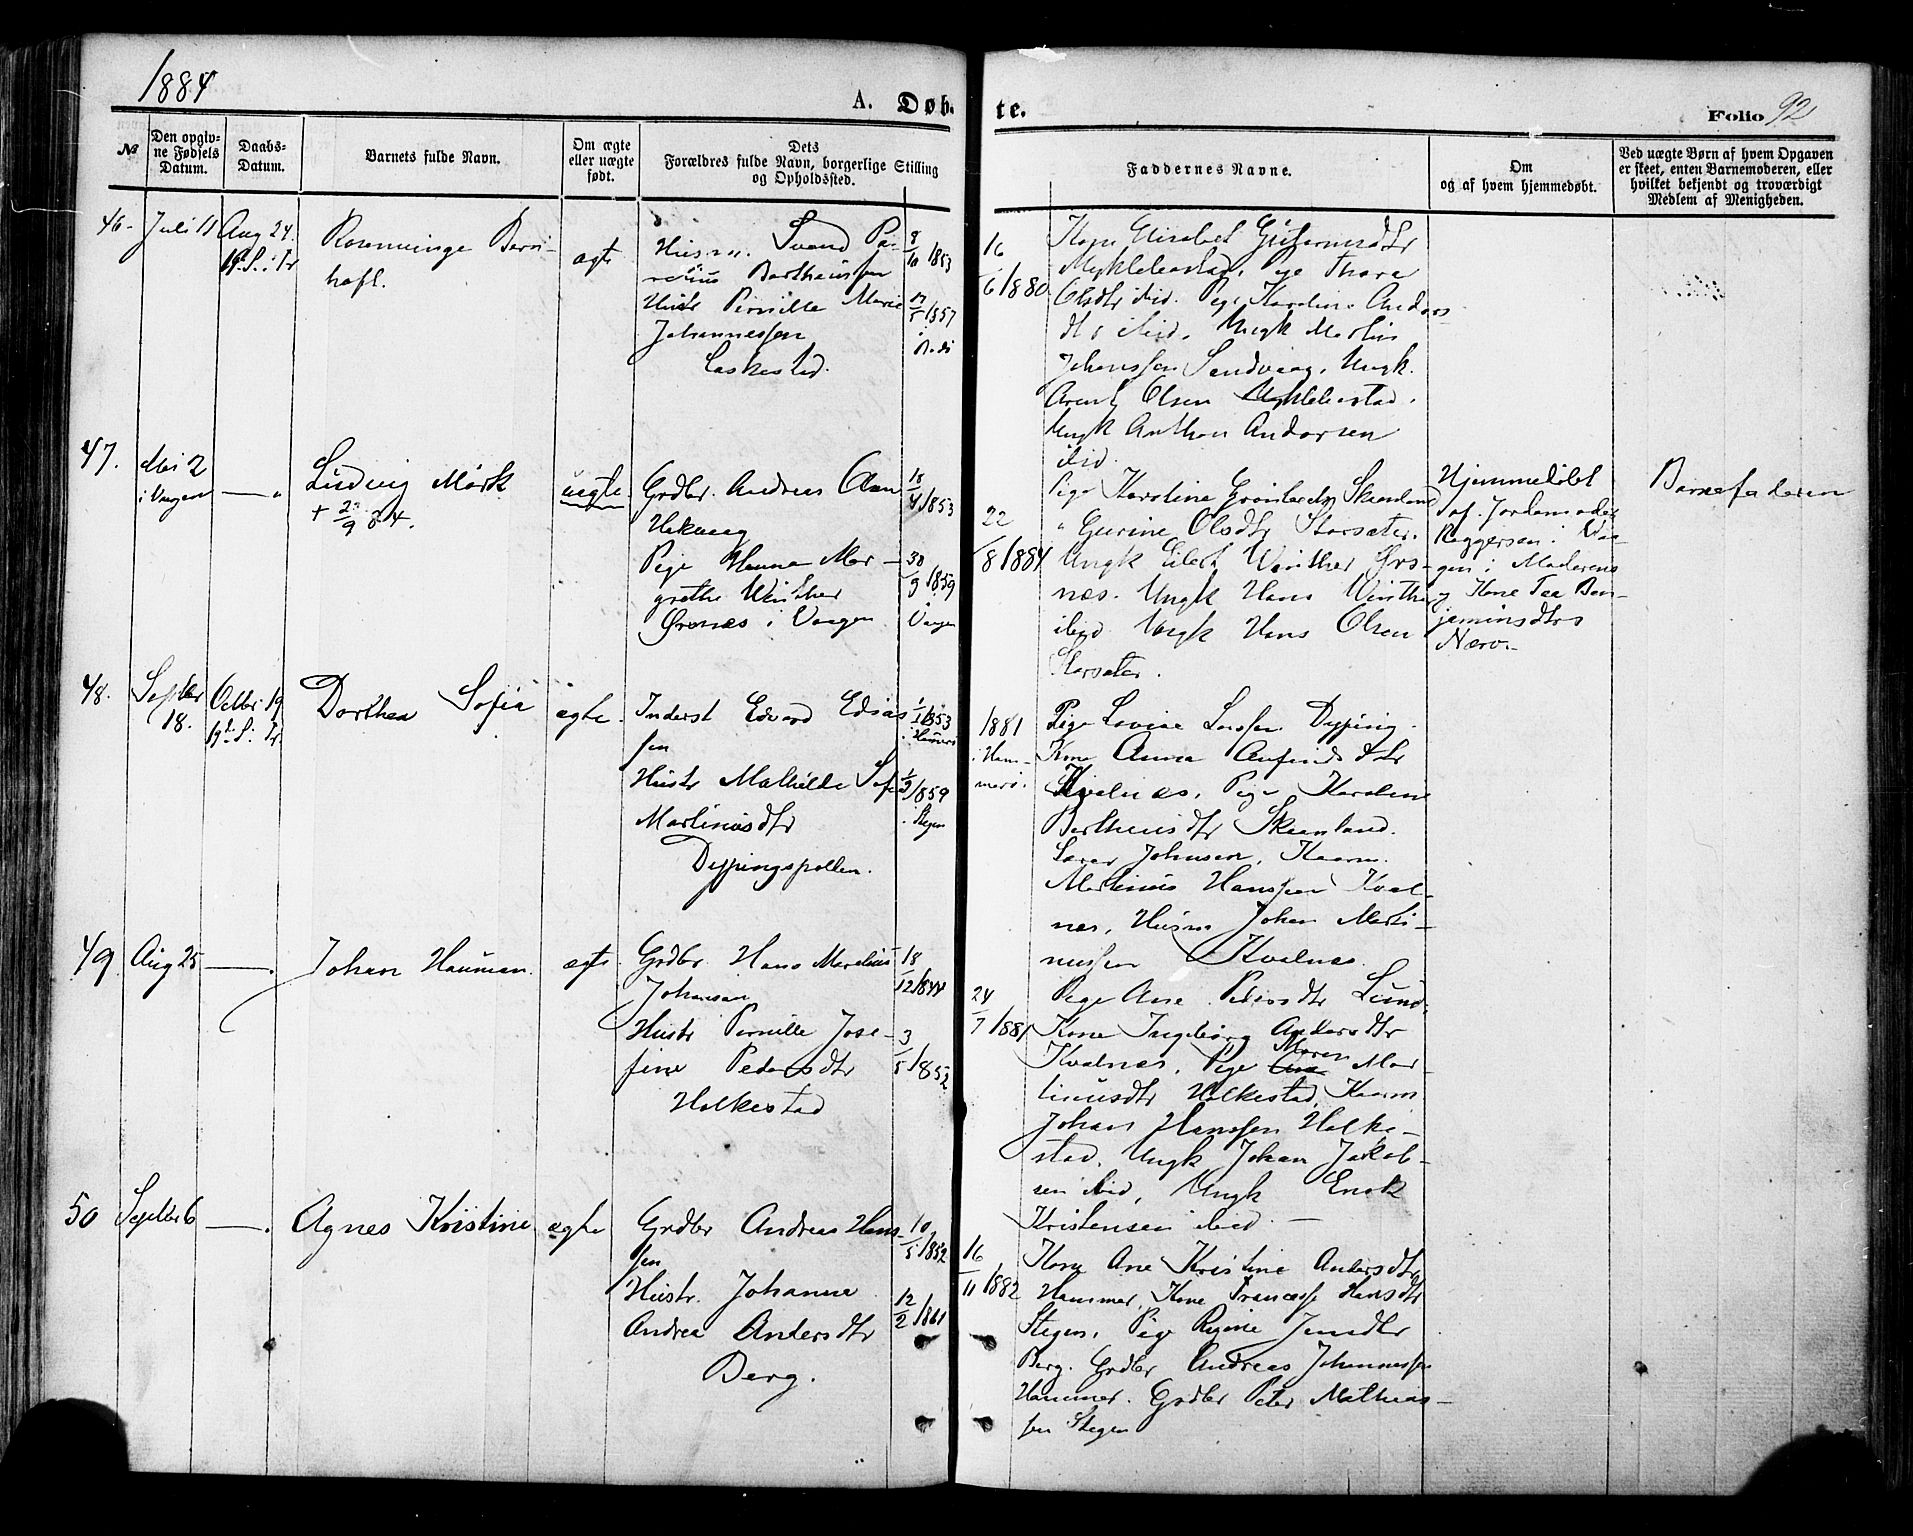 1884
A. Døb-
te.
Folio 92
№
Den opgiv-
ne Fødsels
Datum.
Daabs-
Datum.
Barnets fulde Navn.
Om ægte
eller uægte
født.
Dets
Forældres fulde Navn, borgerlige Stilling
og Opholdssted.
Faddernes Navne.
Om
og af hvem hjemmedøbt.
Ved uægte Børn af hvem Opgaven
er skeet, enten Barnemoderen, eller
hvilket bekjendt og troværdigt
Medlem af Menigheden.
46.
Juli 11
Aug 24.
Rosenvinge
ægte
Husm. Svend
Bartheussen
Hustr Pernille Marie
Johannessen
Laskestad.
8/10 1853
/5 1857
16/6 1880
Kone Elisabet
Myklebostad, Pige Thora
Olsdtr ibid. Pige Karoline Anders
dtr ibid. Ungk Martin
Johanssen Sandvaag, Ungk.
Arent Olsen Myklebostad.
Ungk Anthon Andersen
ibid.
47.
Mai 2
i Vaagen
— "
Ludvig Mørk
uægte
Grdbr. Andreas
Pige Hanna Mar-
grethe Winther
Ørsnes i Vaagen
18/4 1853
30/9 1859
i Vaagen
22/8 1884
Pige Karoline Skaanland
" Gurine Olsdtr Storsæter.
Ungk Eilert Winther Ørs-
nes. Ungk Hans Winther
ibid Ungk Hans Olsen
Storsæter.
Hjemmedøbt
af Jordemoder
i Vaa-
gen i Moderens
og Kone Ben-
jaminsdtrs
Nærv.
Barnefaderen
48.
Septbr
18.
Octbr 19
19. S. Tr
Dorthea Sofie
ægte
Inderst Edvard Edias
sen
Hustr Mathilde Sofie
Martinusdtr
Dyppingspollen.
1853
1859
i Stegen
1881
i Ham-
merø.
Pige Lovise Larssen Dypping.
Kone Anna
Kvalnes, Pige Karoline
Bertheusdtr Skaanland.
Johnsen, Kaarm.
Martinus Hanssen Kval-
nes, Husm Johan Marti-
nussen Kvalnes.
49
Aug 25
—.
Johan Hauman.
ægte
Grdbr. Hans Marelius
Johansen
Hustr Pernille Jose-
fine Pedersdtr
Holkestad
18/12 1844
3/5 1852
24/7 1881
Pige Ane Pedersdtr Lund.
Kone Ingeborg Andersdtr
Kvalnes, Pige Maren Mar-
tinusdtr Holkestad, Kaarm
Johan Hanssen Holke-
stad, Ungk Johan Jakob-
sen ibid, Ungk Enok
Kristensen ibid. —
50
Septbr 6
—.
Agnes Kristine
ægte
Grdbr Andreas Hans-
sen
Hustr. Johanna
Andrea Andersdtr
Berg.
10/5 1852
12/2 1861
16/11 1882
Kone Ane Kristine Andersdtr
Hammer, Kone Hansdtr
Stegen, Pige Regine Jensdtr
Berg. Grdbr Andreas Johannessen
Hammer. Grdbr Peter Mathias-
sen Stegen